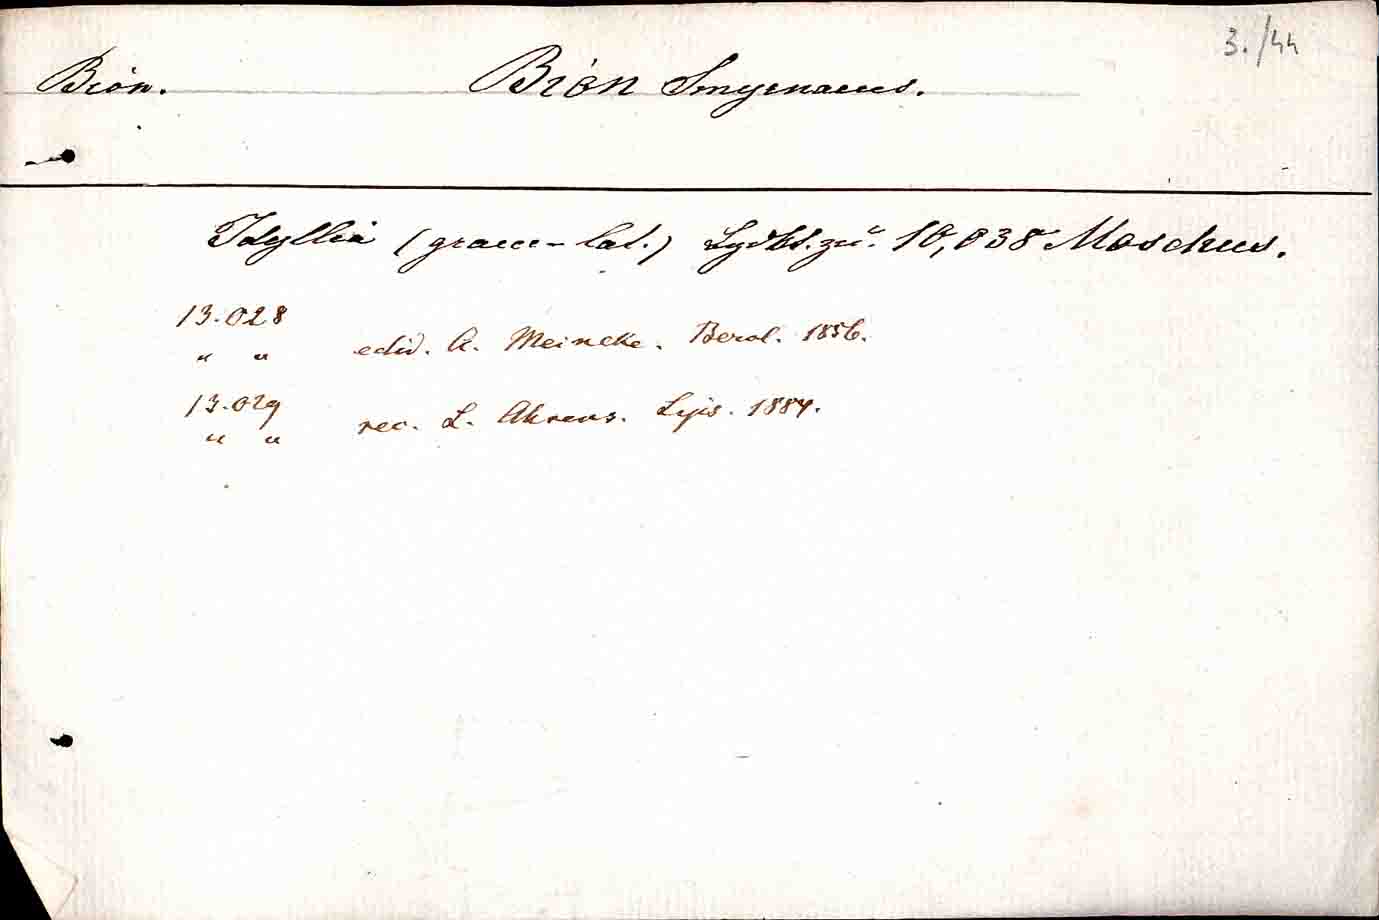 3./44
Bion. Bion Smyrnaeus.
Idyllia (graece-lat.) 10,038 Moschus.
13.028
" " edid. A. Meineke. Berol. 1856.
13.029
" " rec. L. Ahrens. Lips. 1884.